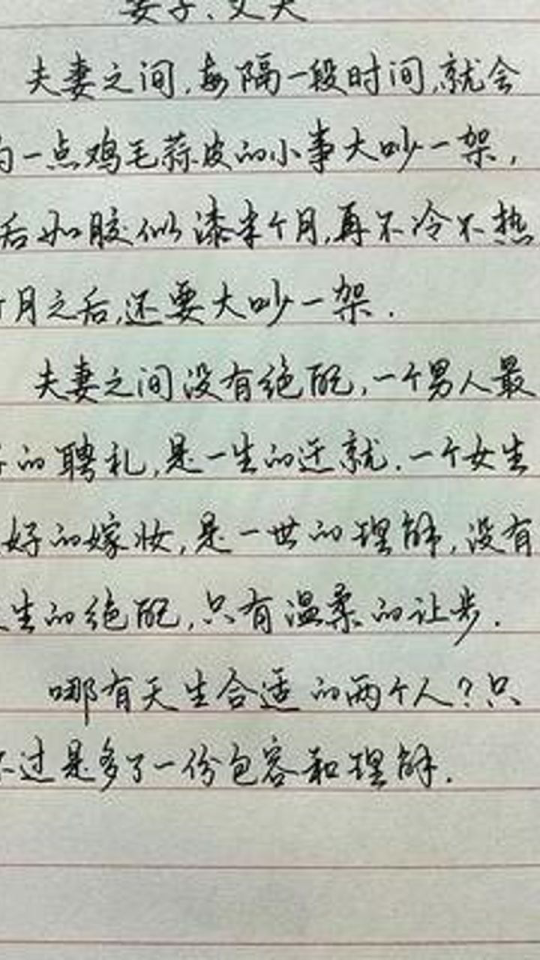 妻子、丈夫
夫妻之间,每隔一段时间,就会
为一点鸡毛蒜皮的小事大吵一架,
后如胶似漆半个月,再不冷不热
个月之后,还要大吵一架.
夫妻之间没有绝配,一个男人最
的聘礼,是一生的迁就.一个女生
好的嫁妆,是一世的理解,没有
生的绝配,只有温柔的让步.
哪有天生合适的两个人?只
不过是多了一份包容和理解.